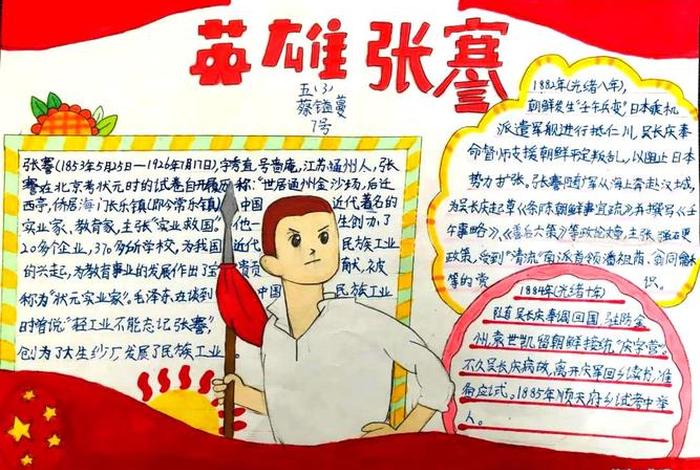 英雄张謇
五(3)
蔡镒蔓
7号
张謇(1853年5月25日一1926年7月17日),字季直,号啬庵,江苏通州人,张
謇在北京考状元时的试卷自开履历称:"世居通州金沙场,后迁
西亭,侨居海门长乐镇(即今常乐镇) 中国 近代著名的
实业家、教育家,主张"实业救国。 他一 生创办了
20多个企业,370多所学校,为我国 近代 民族工业
的兴起,为教育事业的发展作出了宝 贵贡 献,被
称为"状元实业家"。毛泽东在谈到 中国 民族工业
时曾说:"轻工业不能忘记张謇"
创办了大生纱厂发展了民族工业
1882年(光绪八年),
朝鲜发生"壬午兵变",日本乘机
派遣军舰进行抵仁川,吴长庆奉
命督师支援朝鲜平定叛乱,以阻止日本
势力扩张。张謇随庆军从海上奔赴汉城,
为吴长庆起草《条陈朝鲜事宜疏》并撰写《壬
午事略》、《善后六策》等政论文章,主张强硬
政策,受到"清流"南派首领潘祖荫、翁同龢
等的赏 识。
1884年(光绪十年)
随吴长庆奉调回国,驻防金
州,袁世凯留朝鲜接统"庆字营"。
不久吴长庆病故,离开庆军回乡读书,准
备应试。1885年顺天府乡试考中举
人。